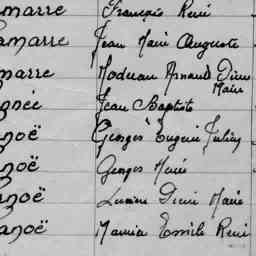 marre François René
amarre Jean Marie Auguste
marre Moderan Armand Dieu
Marie
nnée Jean Baptiste
noë Georges Eugène Julien
noë Georges Marie
anoë Lucien Désiré Marie
anoë Maurice Emile René